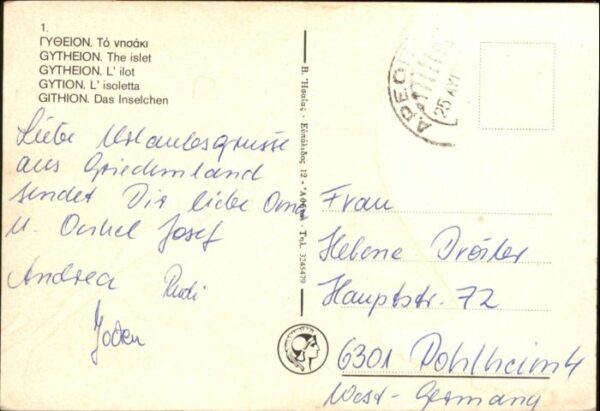 1.
ΓΥΘΕΙΟΝ. Τό νησάκι
GYTHEION. The islet
GYTHEION. L' ilot
GYTION. L' isoletta
GITHION. Das Inselchen
Liebe Urlaubsgrüsse
aus Griechenland
sendet Dir liebe Oma
u. Onkel Josef
Andrea Rudi
B. Ἡσαΐας - Εὐπόλιδος 12 - Ἀθῆναι - Τηλ. 3245479
ΑΡΕΟΠ
25
Frau
Helene Dröiler
Hauptstr. 72
6301 Pohlheim 4
West-Germany